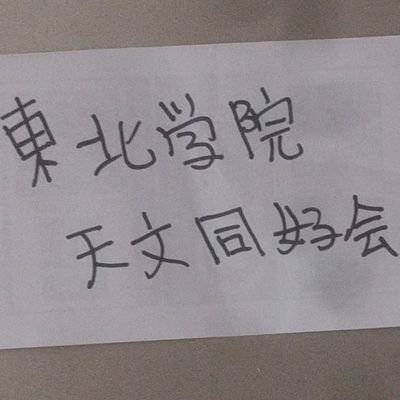 東北学院
天文同好会